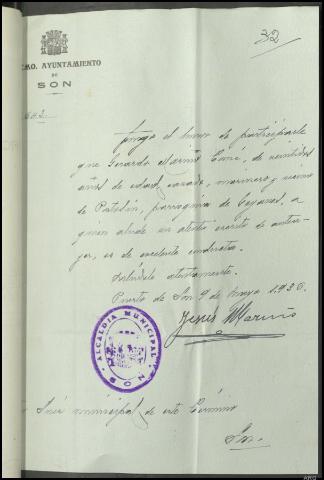 32
CMO. AYUNTAMIENTO
DE
SON
Tengo el honor de participarle
que Gerardo Mariño, de veintidos
años de edad, casado, marinero y vecino
de parroquia de a
quien alude su atento escrito de
es de excelente conducta.
Salúdole atentamente.
Puerto de Son 9 de Mayo 1.936.
Jesús Mariño
ALCALDIA MUNICIPAL
SON
Juez municipal de este Término
Son.